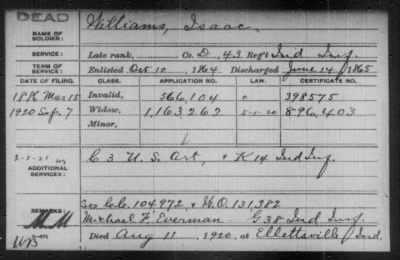 DEAD
NAME OF SOLDIER: Williams, Isaac.
SERVICE: Late rank, Co. D, 43 Reg't Ind Inf.
TERM OF SERVICE: Enlisted Oct 10, 1864 Discharged June 14, 1865
DATE OF FILING. CLASS. APPLICATION NO. LAW. CERTIFICATE NO.
1886 Mar 15 Invalid, 566,104 " 398575
1920 Sep. 7 Widow, 1,163,262 5-1-20 896,403
Minor,
2-2-21
ADDITIONAL SERVICES: C 3 U. S. Art, & K 14 Ind Inf.
REMARKS: See C. 104972, & W.O. 131,382
MM Michael F. Everman - G 38 Ind Inf.
Died Aug 11, 1920, at Ellettsville, Ind.